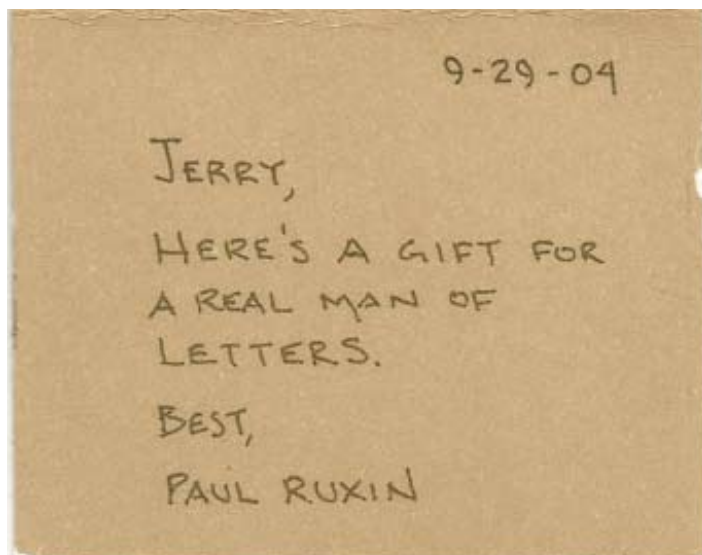 9-29-04
JERRY,
HERE'S A GIFT FOR
A REAL MAN OF
LETTERS.
BEST,
PAUL RUXIN